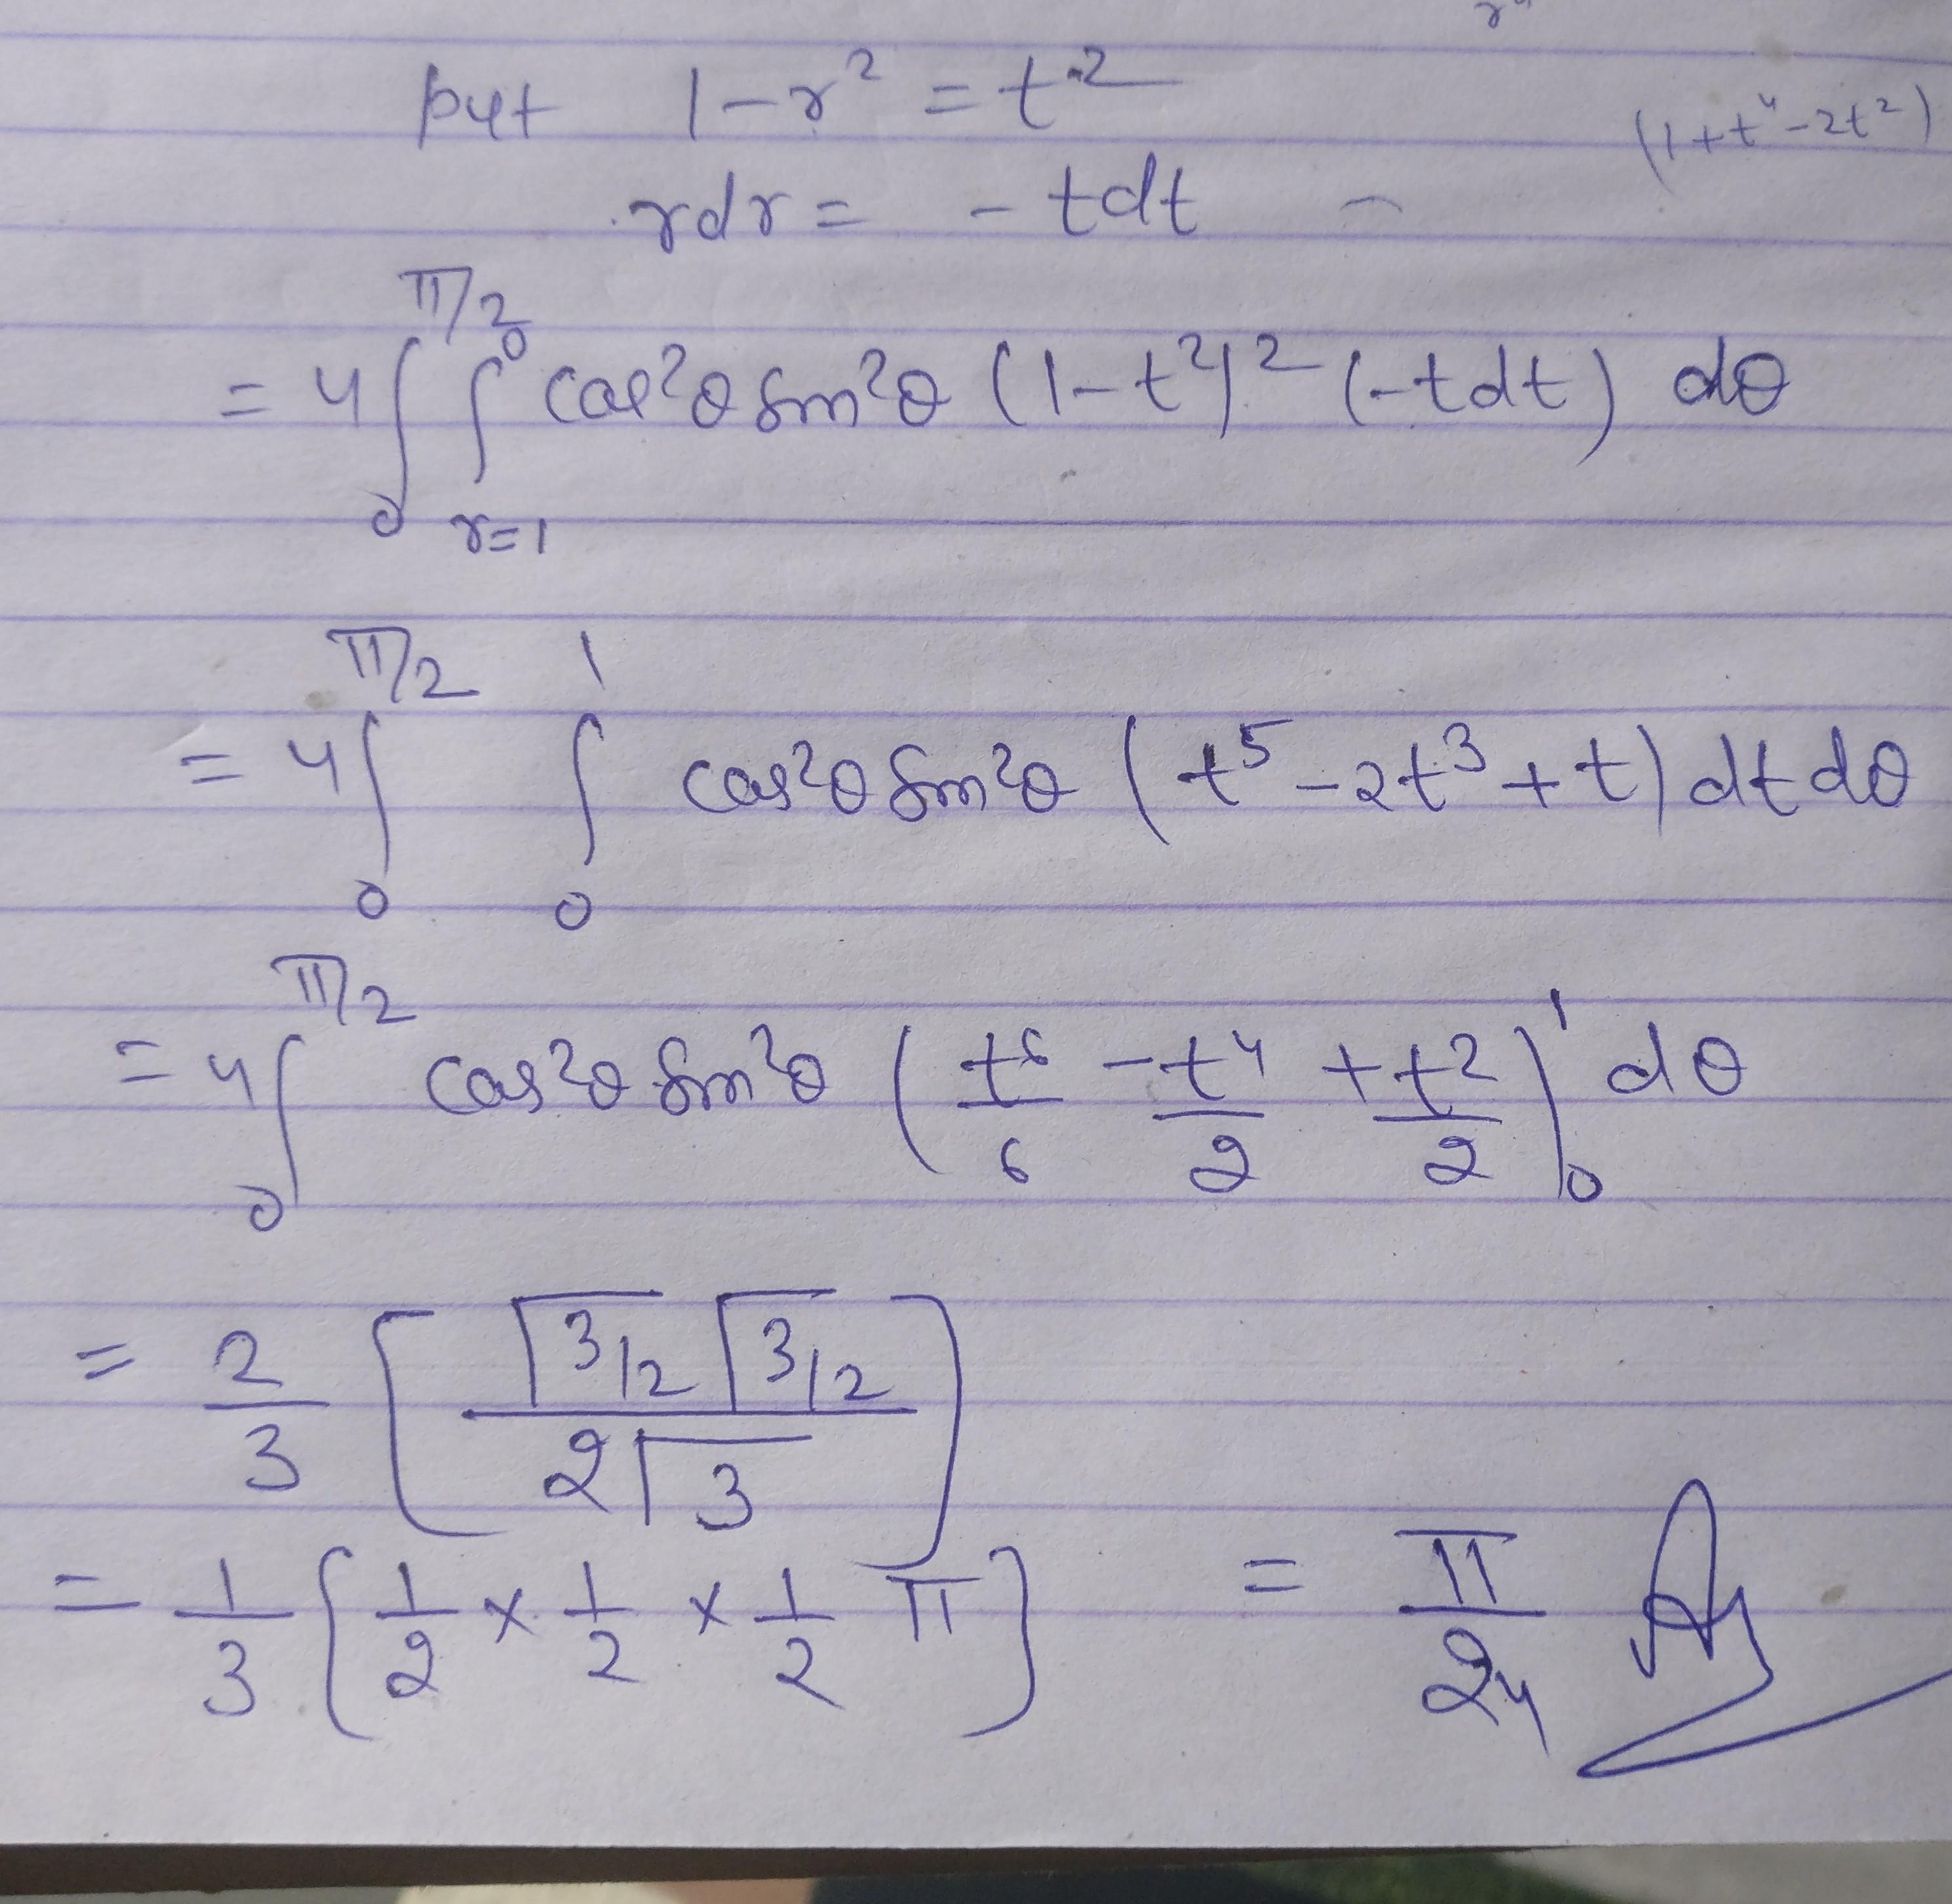 put 1-r² = t²
(1+t⁴-2t²)
rdr = -tdt
= 4∫₀^{π/2} ∫_{r=1}^{0} cos²θ sin²θ (1-t²)² (-tdt) dθ
= 4∫₀^{π/2} ∫₀^{1} cos²θ sin²θ (t⁵-2t³+t) dt dθ
= 4∫₀^{π/2} cos²θ sin²θ (t⁶/6 - t⁴/2 + t²/2)₀¹ dθ
= 2/3 [Γ3/2 Γ3/2 / 2Γ3]
= 1/3 [1/2 × 1/2 × 1/2 π] = π/24 Ans